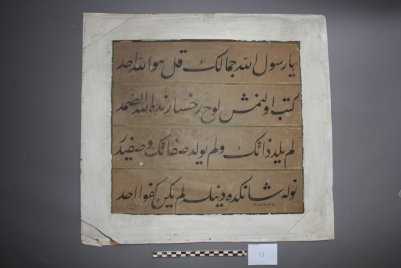 يا رسول الله جمالك قل هو الله احد
كتب اولنمش لوح رخسارنده الله الصمد
لم يلد ذاتك ولم يولد صفاتك و صفيدر
نوله شانكده دينيله لم يكن كفوا احد